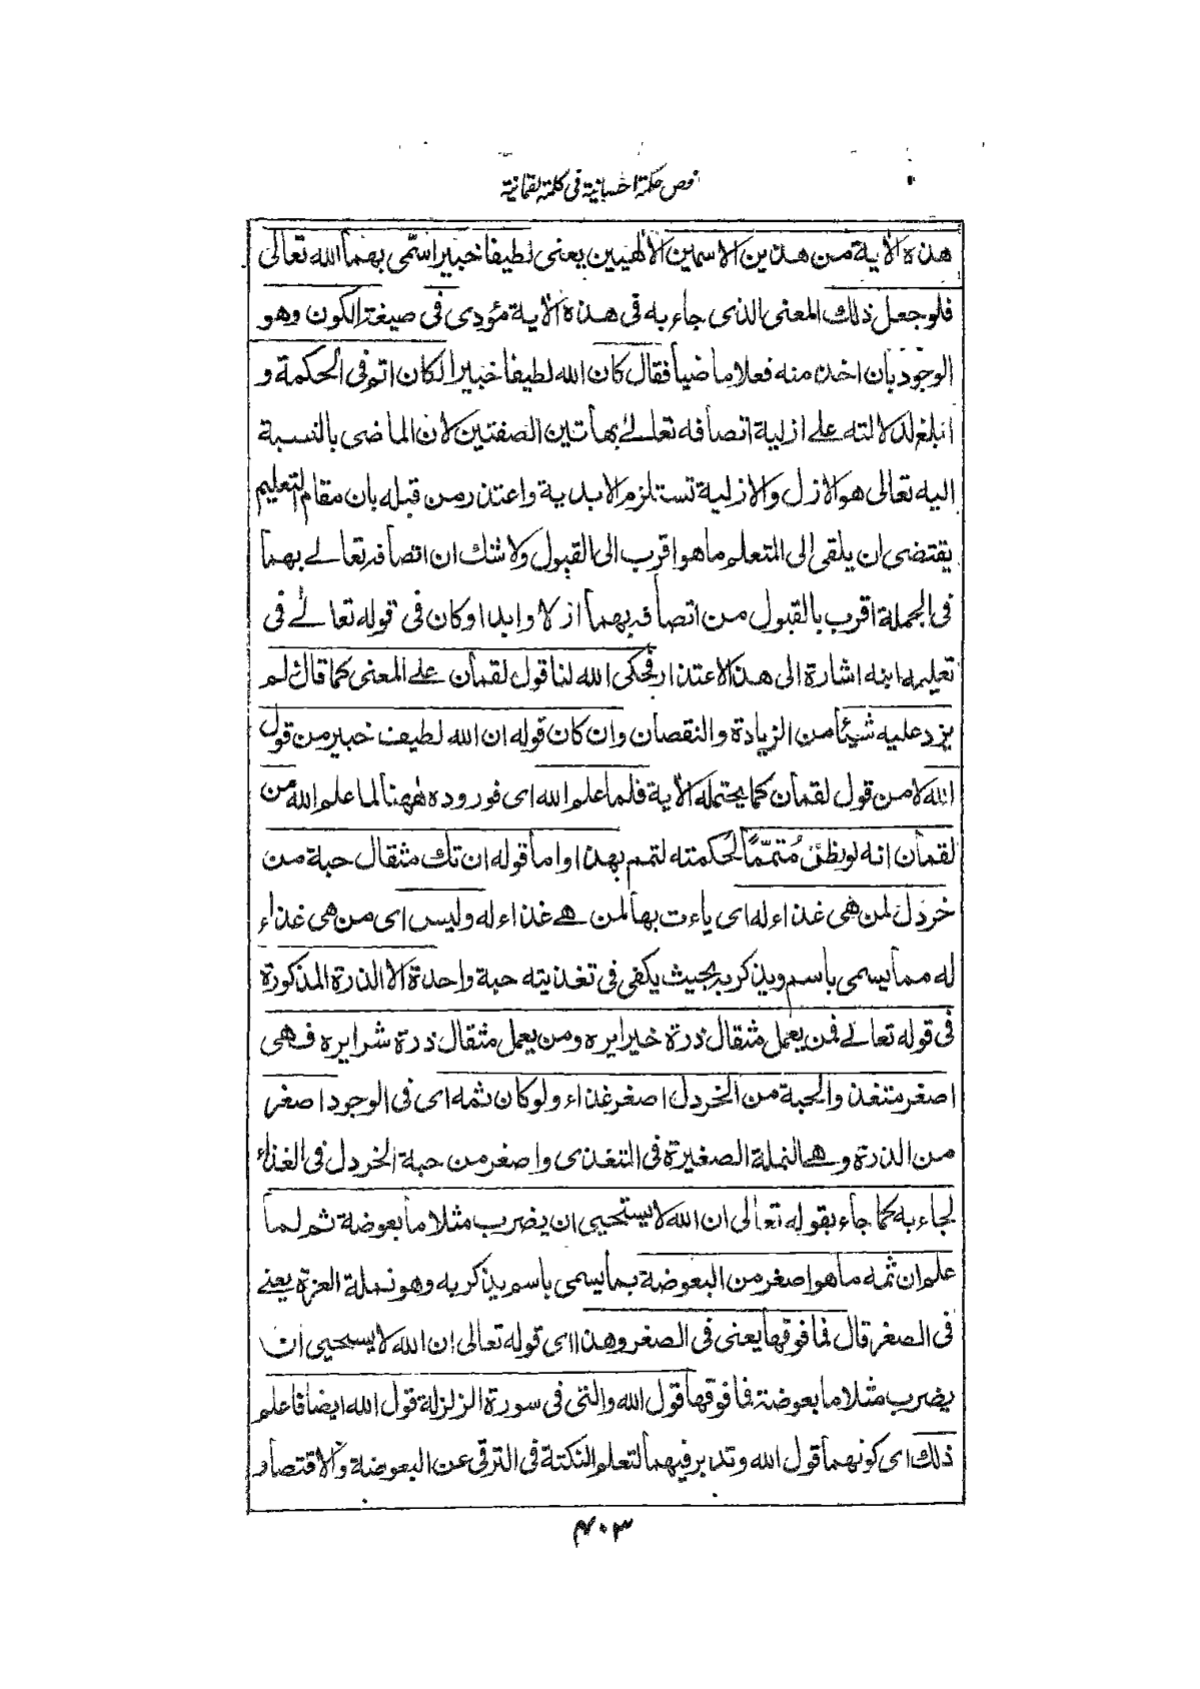 فص حكمة احسانية فى كلمة لقمانية
هذه الاية من هذين الاسمين الالهيين يعنى لطيفا خبيرا سمى بهما الله تعالى
فلو جعل ذلك المعنى الذى جاء به فى هذه الاية مؤدى فى صيغة الكون وهو
الوجود بان اخذ منه فعلا ماضيا فقال كان الله لطيفا خبيرا لكان اتم فى الحكمة و
ابلغ لدلالته على ازلية اتصافه تعالى بهاتين الصفتين لان الماضى بالنسبة
اليه تعالى هو الازل والازلية تستلزم الابدية واعتذر من قبله بان مقام التعليم
يقتضى ان يلقى الى المتعلم ما هو اقرب الى القبول ولا شك ان اتصافه تعالى بهما
فى الجملة اقرب بالقبول من اتصافه بهما ازلا وابدا وكان فى قوله تعالى فى
تعليمه ابنه اشارة الى هذا الاعتذار فحكى الله لنا قول لقمان على المعنى كما قال لم
يزد عليه شيئا من الزيادة والنقصان وان كان قوله ان الله لطيف خبير من قول
الله لا من قول لقمان كما يحتمله الاية فلما علم الله اى فوروده ههنا لما علم الله من
لقمان انه لو نطق مُتمّمًا لحكمته لتمم بهذا واما قوله ان تك مثقال حبة من
خردل لمن هى غذاء له اى يأت بها لمن هى غذاء له وليس اى من هى غذاء
له مما يسمى باسم ويذكر به بحيث يكفى فى تغذيته حبة واحدة الا الذرة المذكورة
فى قوله تعالى فمن يعمل مثقال ذرة خيرا يره ومن يعمل مثقال ذرة شرا يره فهى
اصغر متغذ والحبة من الخردل اصغر غذاء ولو كان ثمه اى فى الوجود اصغر
من الذرة وهى النملة الصغيرة فى التغذى واصغر من حبة الخردل فى الغذاء
لجاء به كما جاء بقوله تعالى ان الله لا يستحيى ان يضرب مثلا ما بعوضة ثم لما
علم ان ثمه ما هو اصغر من البعوضة بما يسمى باسم يذكر به وهو نملة العزة يعنى
فى الصغر قال فما فوقها يعنى فى الصغر وهذا اى قوله تعالى ان الله لا يستحيى ان
يضرب مثلا ما بعوضة فما فوقها قول الله والتى فى سورة الزلزلة قول الله ايضا فاعلم
ذلك اى كونهما قول الله وتدبر فيهما لتعلم النكتة فى الترقى عن البعوضة والاقتصار
۴۰۳